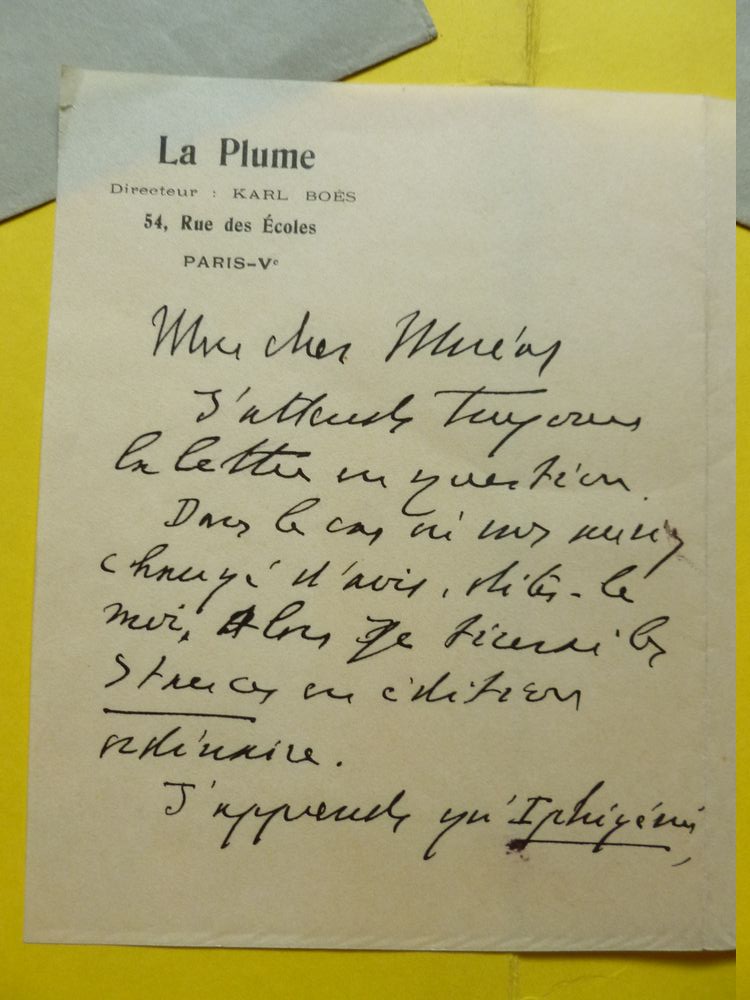 La Plume
Directeur : KARL BOÈS
54, Rue des Écoles
PARIS-Vᵉ
Mon cher Moréas
J'attends toujours
la lettre en question.
Dans le cas où vous auriez
changé d'avis, dites-le
moi. Alors je tirerai les
Stances en édition
ordinaire.
J'apprends qu'Iphigénie,